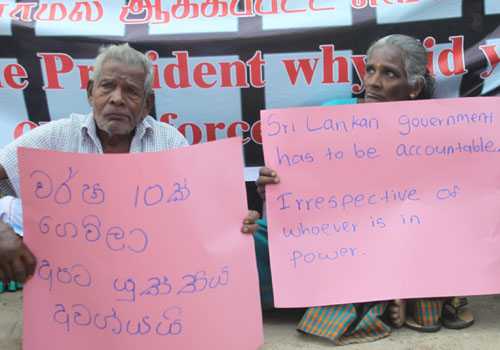 ஆக்கப்பட்ட
President why did
වර්ෂ 10ක්
ගෙවිලා
අපට යුක්තිය
අවශ්‍යයි
Sri Lankan government
has to be accountable.
Irrespective of
whoever is in
power.